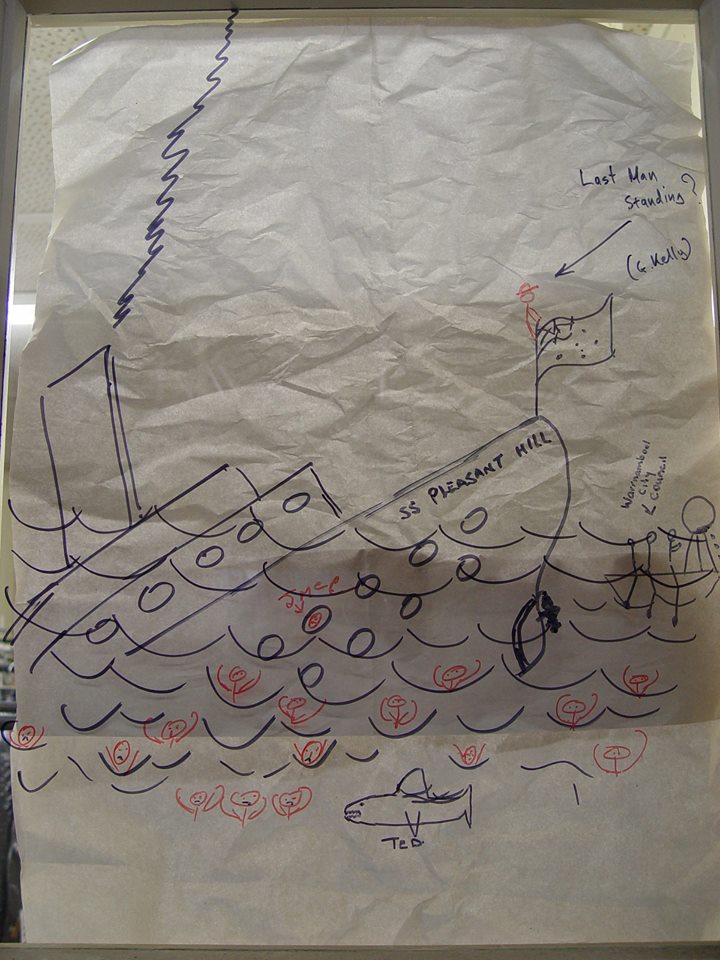 Last Man
Standing?
(G. Kelly)
SS PLEASANT HILL
Warrnambool
City
Council
TED